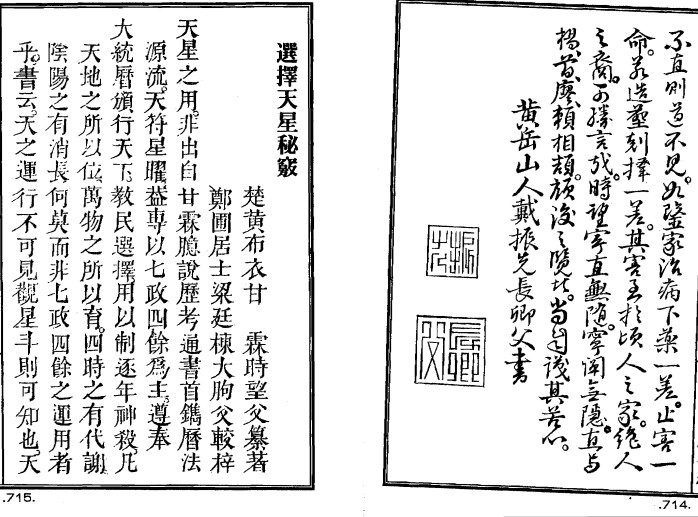 不直則道不見。如醫家治病下藥一差。止害一
命。若造塟刻擇一差。其害至於傾人之家。絶人
之裔。可勝言哉。時望寧直無隨。寧闢無隱。直與
楊曾廖賴相頡頏。後之覽者。當自識其苦心。
黄岳山人戴振先長卿父書
.714.
選擇天星秘竅
楚黄布衣甘　霖時望父纂著
鄭圃居士梁廷棟大胊父較梓
天星之用。非出自甘霖臆說歷考通書首鐫曆法
源流。天符星曜葢專以七政四餘爲主。遵奉
大統曆頒行天下。教民選擇用以制逐年神殺。凡
天地之所以位。萬物之所以育。四時之有代謝。
陰陽之有消長何莫而非七政四餘之運用者
乎。書云。天之運行不可見觀星斗則可知也。天
.715.